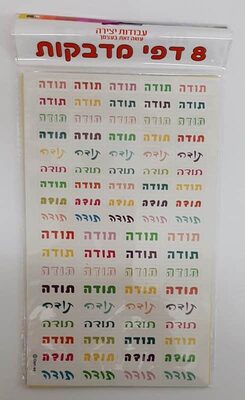 עבודות יצירה
עשה זאת בעצמך
8 דפי מדבקות
תודה תודה תודה תודה תודה
תודה תודה תודה תודה תודה
תודה תודה תודה תודה תודה
תודה תודה תודה תודה תודה
תודה תודה תודה תודה תודה
תודה תודה תודה תודה תודה
תודה תודה תודה תודה תודה
תודה תודה תודה תודה תודה
תודה תודה תודה תודה תודה
תודה תודה תודה תודה
תודה תודה תודה תודה
תודה תודה תודה תודה
תודה תודה תודה תודה
תודה תודה תודה תודה
תודה תודה תודה תודה
תודה תודה תודה תודה
תודה תודה תודה תודה
תודה תודה תודה תודה